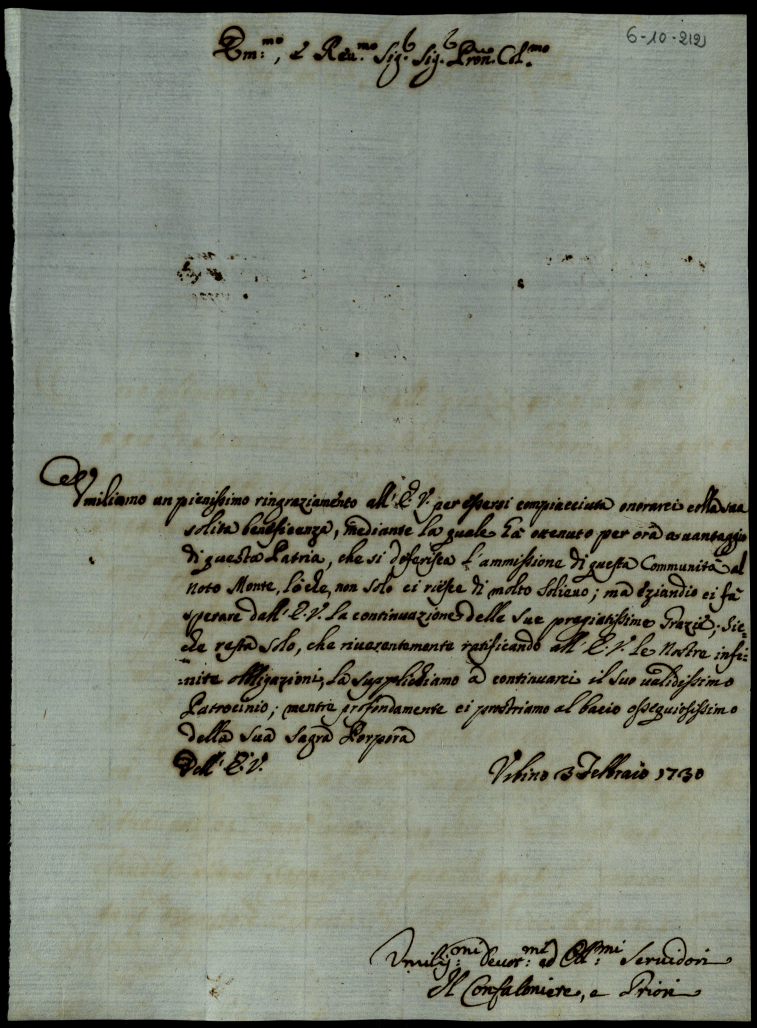 6-10-212
Em:mo, e Reu.mo Sig.r Sig.r Pron. Col.mo
Vmiliamo un pienissimo ringraziamento all' E. V. per essersi compiacciuta onorarci colla sua
solita beneficenza, mediante la quale hà ottenuto per ora a vantaggio
di questa Patria, che si differisca l'ammissione di questa Communità al
noto Monte, loche, non solo ci riesse di molto solieuo; ma eziandio ci fà
sperare dall' E. V. la continuazione delle sue pregiatissime Grazie; Sic-
che resta solo, che riuerentemente ratificando all' E. V. le nostre infi-
nite obligazioni, la supplichiamo à continuarci il suo ualidissimo
Patrocinio; mentre profondamente ci prostriamo al bacio ossequiosissimo
della sua sagra Porpora
Dell' E. V.
Vrbino 3 Febbraio 1730
Vmiliss:mi Deuot:mi ed Obl:mi Seruidori
Il Confaloniere, e Priori